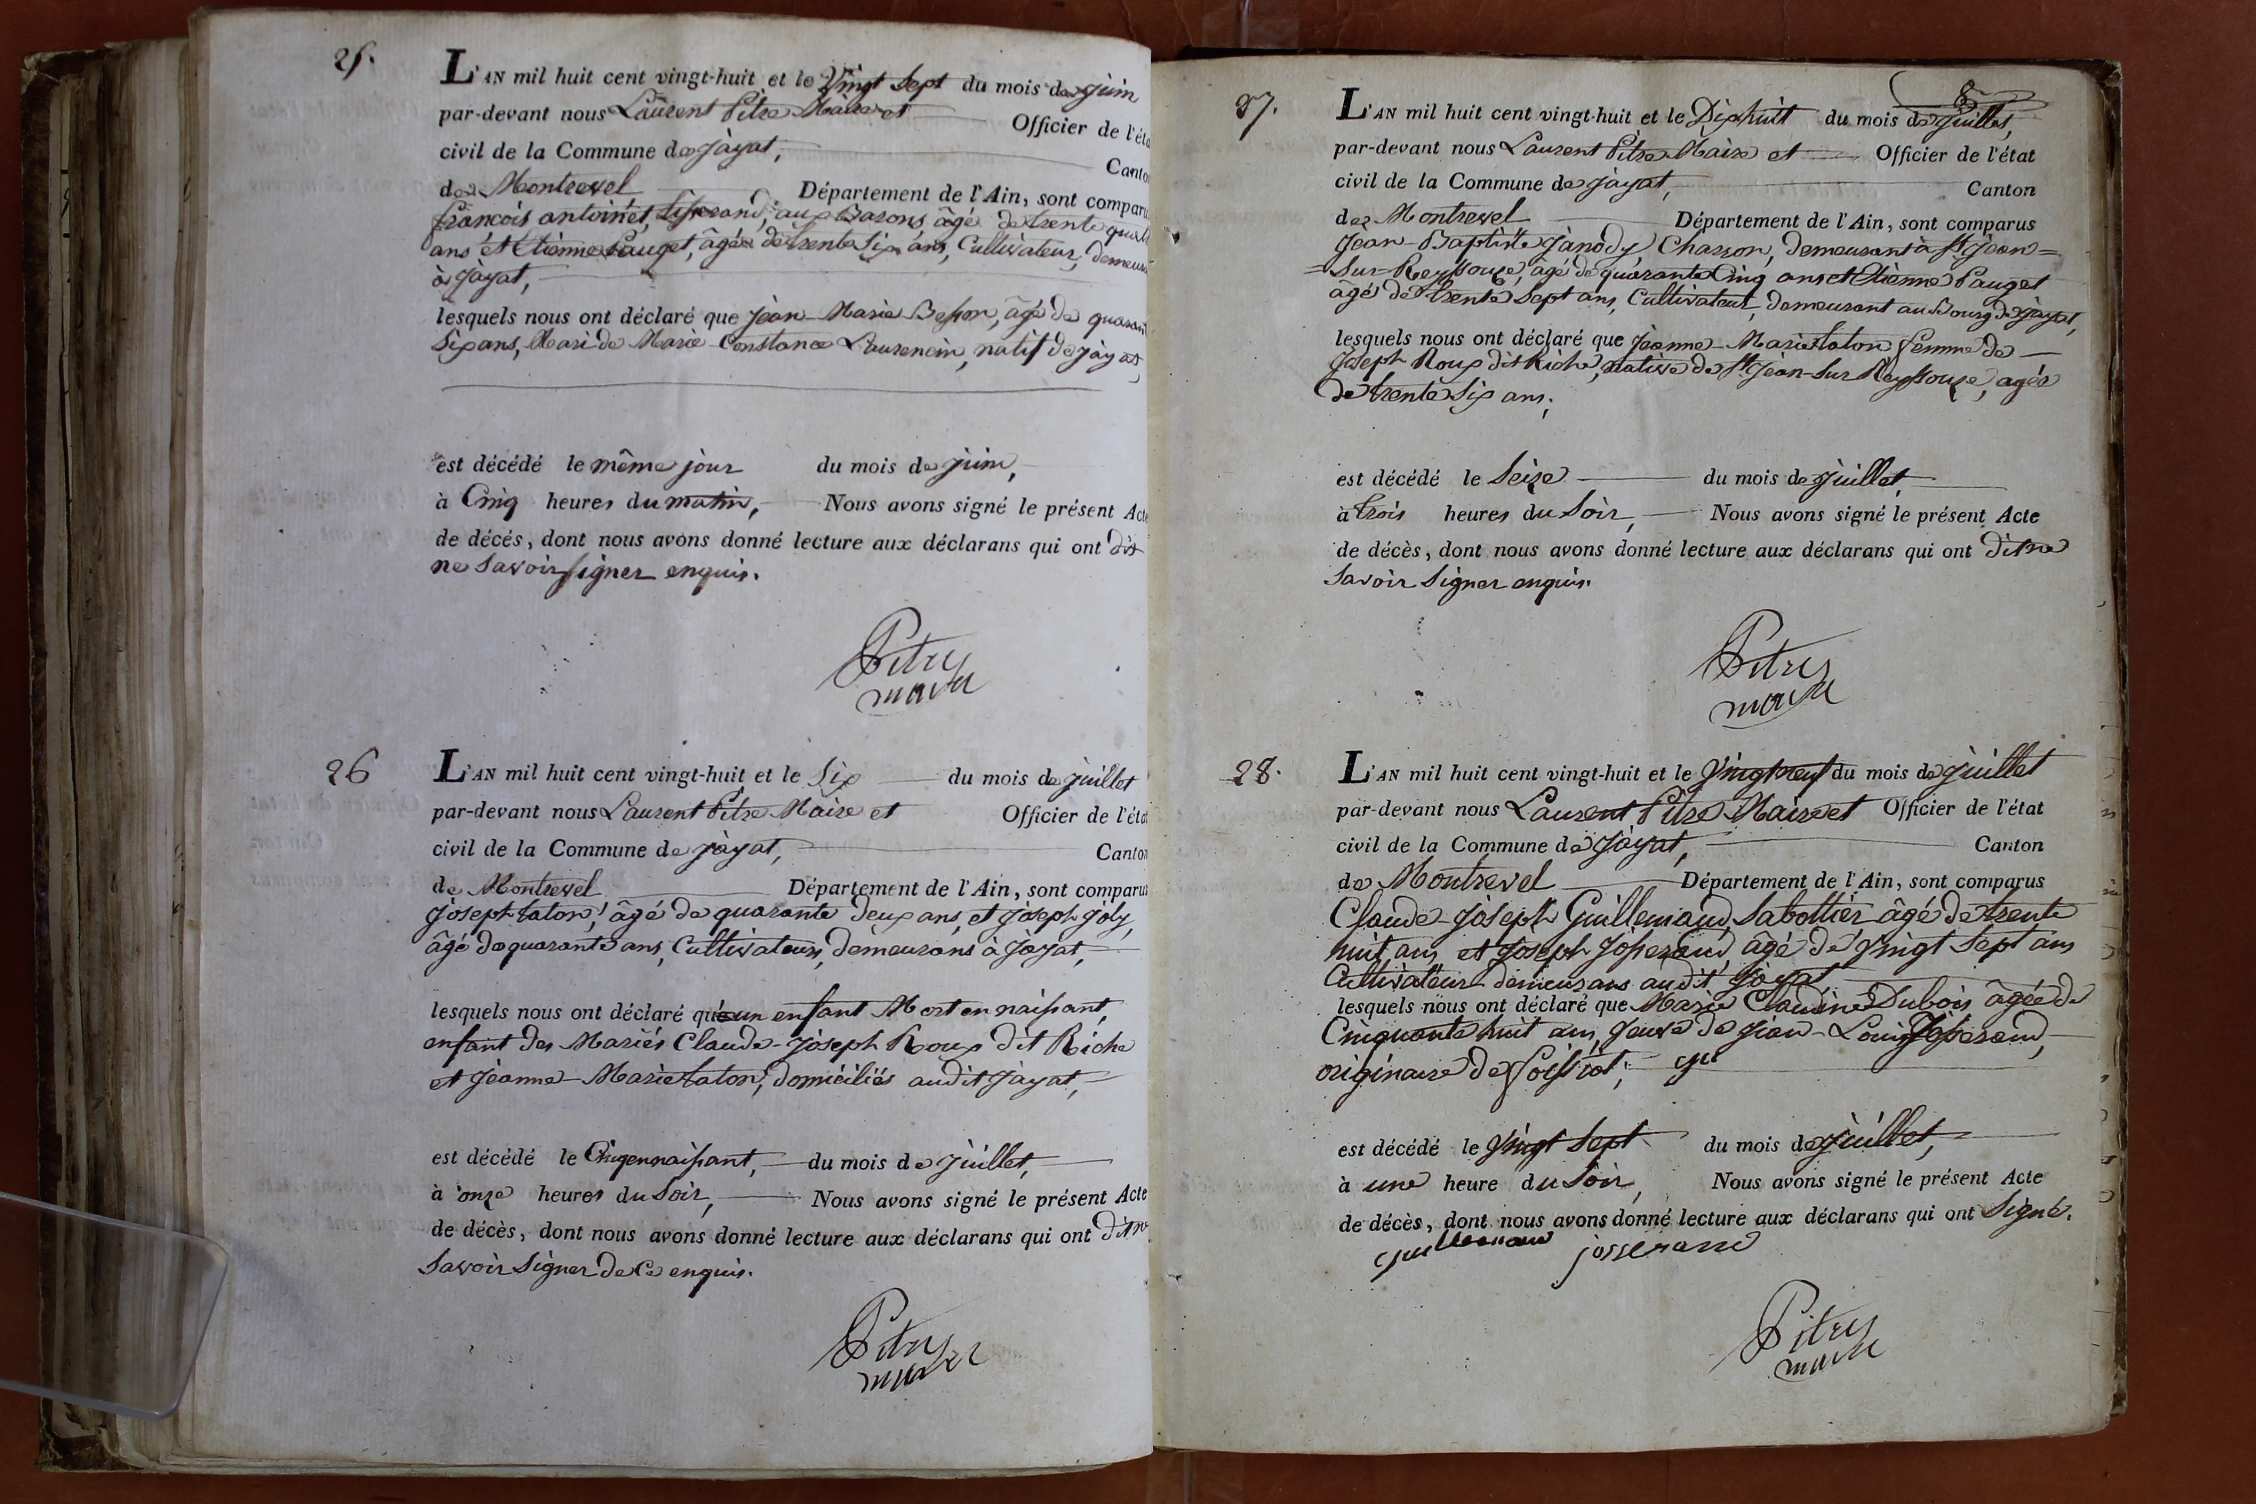 25.
L'AN mil huit cent vingt-huit et le Vingt Sept du mois de juin
par-devant nous Laurent Pitre Maire et Officier de l'éta
civil de la Commune de jàyat, Canton
de Montrevel Département de l'Ain, sont comparu
françois antoinet, tisserand, aux Barons, âgé de trente quatre
ans et Etienne Pauget, âgé de trente Six ans, Cultivateur, demeura
à jàyat,
lesquels nous ont déclaré que jean-Marie Besson, âgé de quarante
Six ans, Mari de Marie-Constance Laurencin, natif de jàyat
est décédé le même jour du mois de juin,
à Cinq heures du matin, Nous avons signé le présent Acte
de décés, dont nous avons donné lecture aux déclarans qui ont dit
ne Savoir signer enquis.
Pitre
maire
26
L'AN mil huit cent vingt-huit et le Six du mois de juillet
par-devant nous Laurent Pitre Maire et Officier de l'état
civil de la Commune de jàyat, Canton
de Montrevel Département de l'Ain, sont comparus
joseph taton, âgé de quarante deux ans, et joseph joly,
âgé de quarante ans, Cultivateurs, demeurans à jàyat,
lesquels nous ont déclaré qu'un enfant Mort en naissant,
enfant des Mariés Claude-joseph Roux dit Riche
et jeanne-Marie taton, domiciliés audit jàyat,
est décédé le Cinq en naissant, du mois de juillet,
à onze heures du Soir, Nous avons signé le présent Acte
de décès, dont nous avons donné lecture aux déclarans qui ont dit ne
Savoir Signer de ce enquis.
Pitre
maire
27.
8
L'AN mil huit cent vingt-huit et le Dixhuit du mois de juillet,
par-devant nous Laurent Pitre Maire et Officier de l'état
civil de la Commune de jàyat, Canton
de Montrevel Département de l'Ain, sont comparus
jean-Baptiste janody, Charron, demeurant à St jean=
=Sur=Reyssouze, âgé de quarante Cinq ans et Etienne Pauget
âgé de trente Sept ans, Cultivateur, demeurant au Bourg de jàyat,
lesquels nous ont déclaré que jeanne-Marie taton femme de
joseph Roux dit Riche, native de St jean-Sur Reyssouze, agée
de trente Six ans,
est décédé le Seize du mois de juillet,
à trois heures du Soir, Nous avons signé le présent Acte
de décès, dont nous avons donné lecture aux déclarans qui ont dit ne
Savoir Signer enquis.
Pitre
maire
28.
L'AN mil huit cent vingt-huit et le Vingt neuf du mois de juillet
par-devant nous Laurent Pitre Maire et Officier de l'état
civil de la Commune de jàyat, Canton
de Montrevel Département de l'Ain, sont comparus
Claude-joseph Guillemaud, Sabottier âgé de trente
huit ans, et joseph josserand, âgé de Vingt Sept ans
Cultivateur demeurans audit jayat
lesquels nous ont déclaré que Marie Claudine Dubois âgée de
Cinquante huit ans, Veuve de jean-Louis josserand,
originaire de Foissiat,
est décédé le Vingt Sept du mois de juillet,
à une heure du Soir, Nous avons signé le présent Acte
de décès, dont nous avons donné lecture aux déclarans qui ont Signé.
guillemaud josserand
Pitre
maire